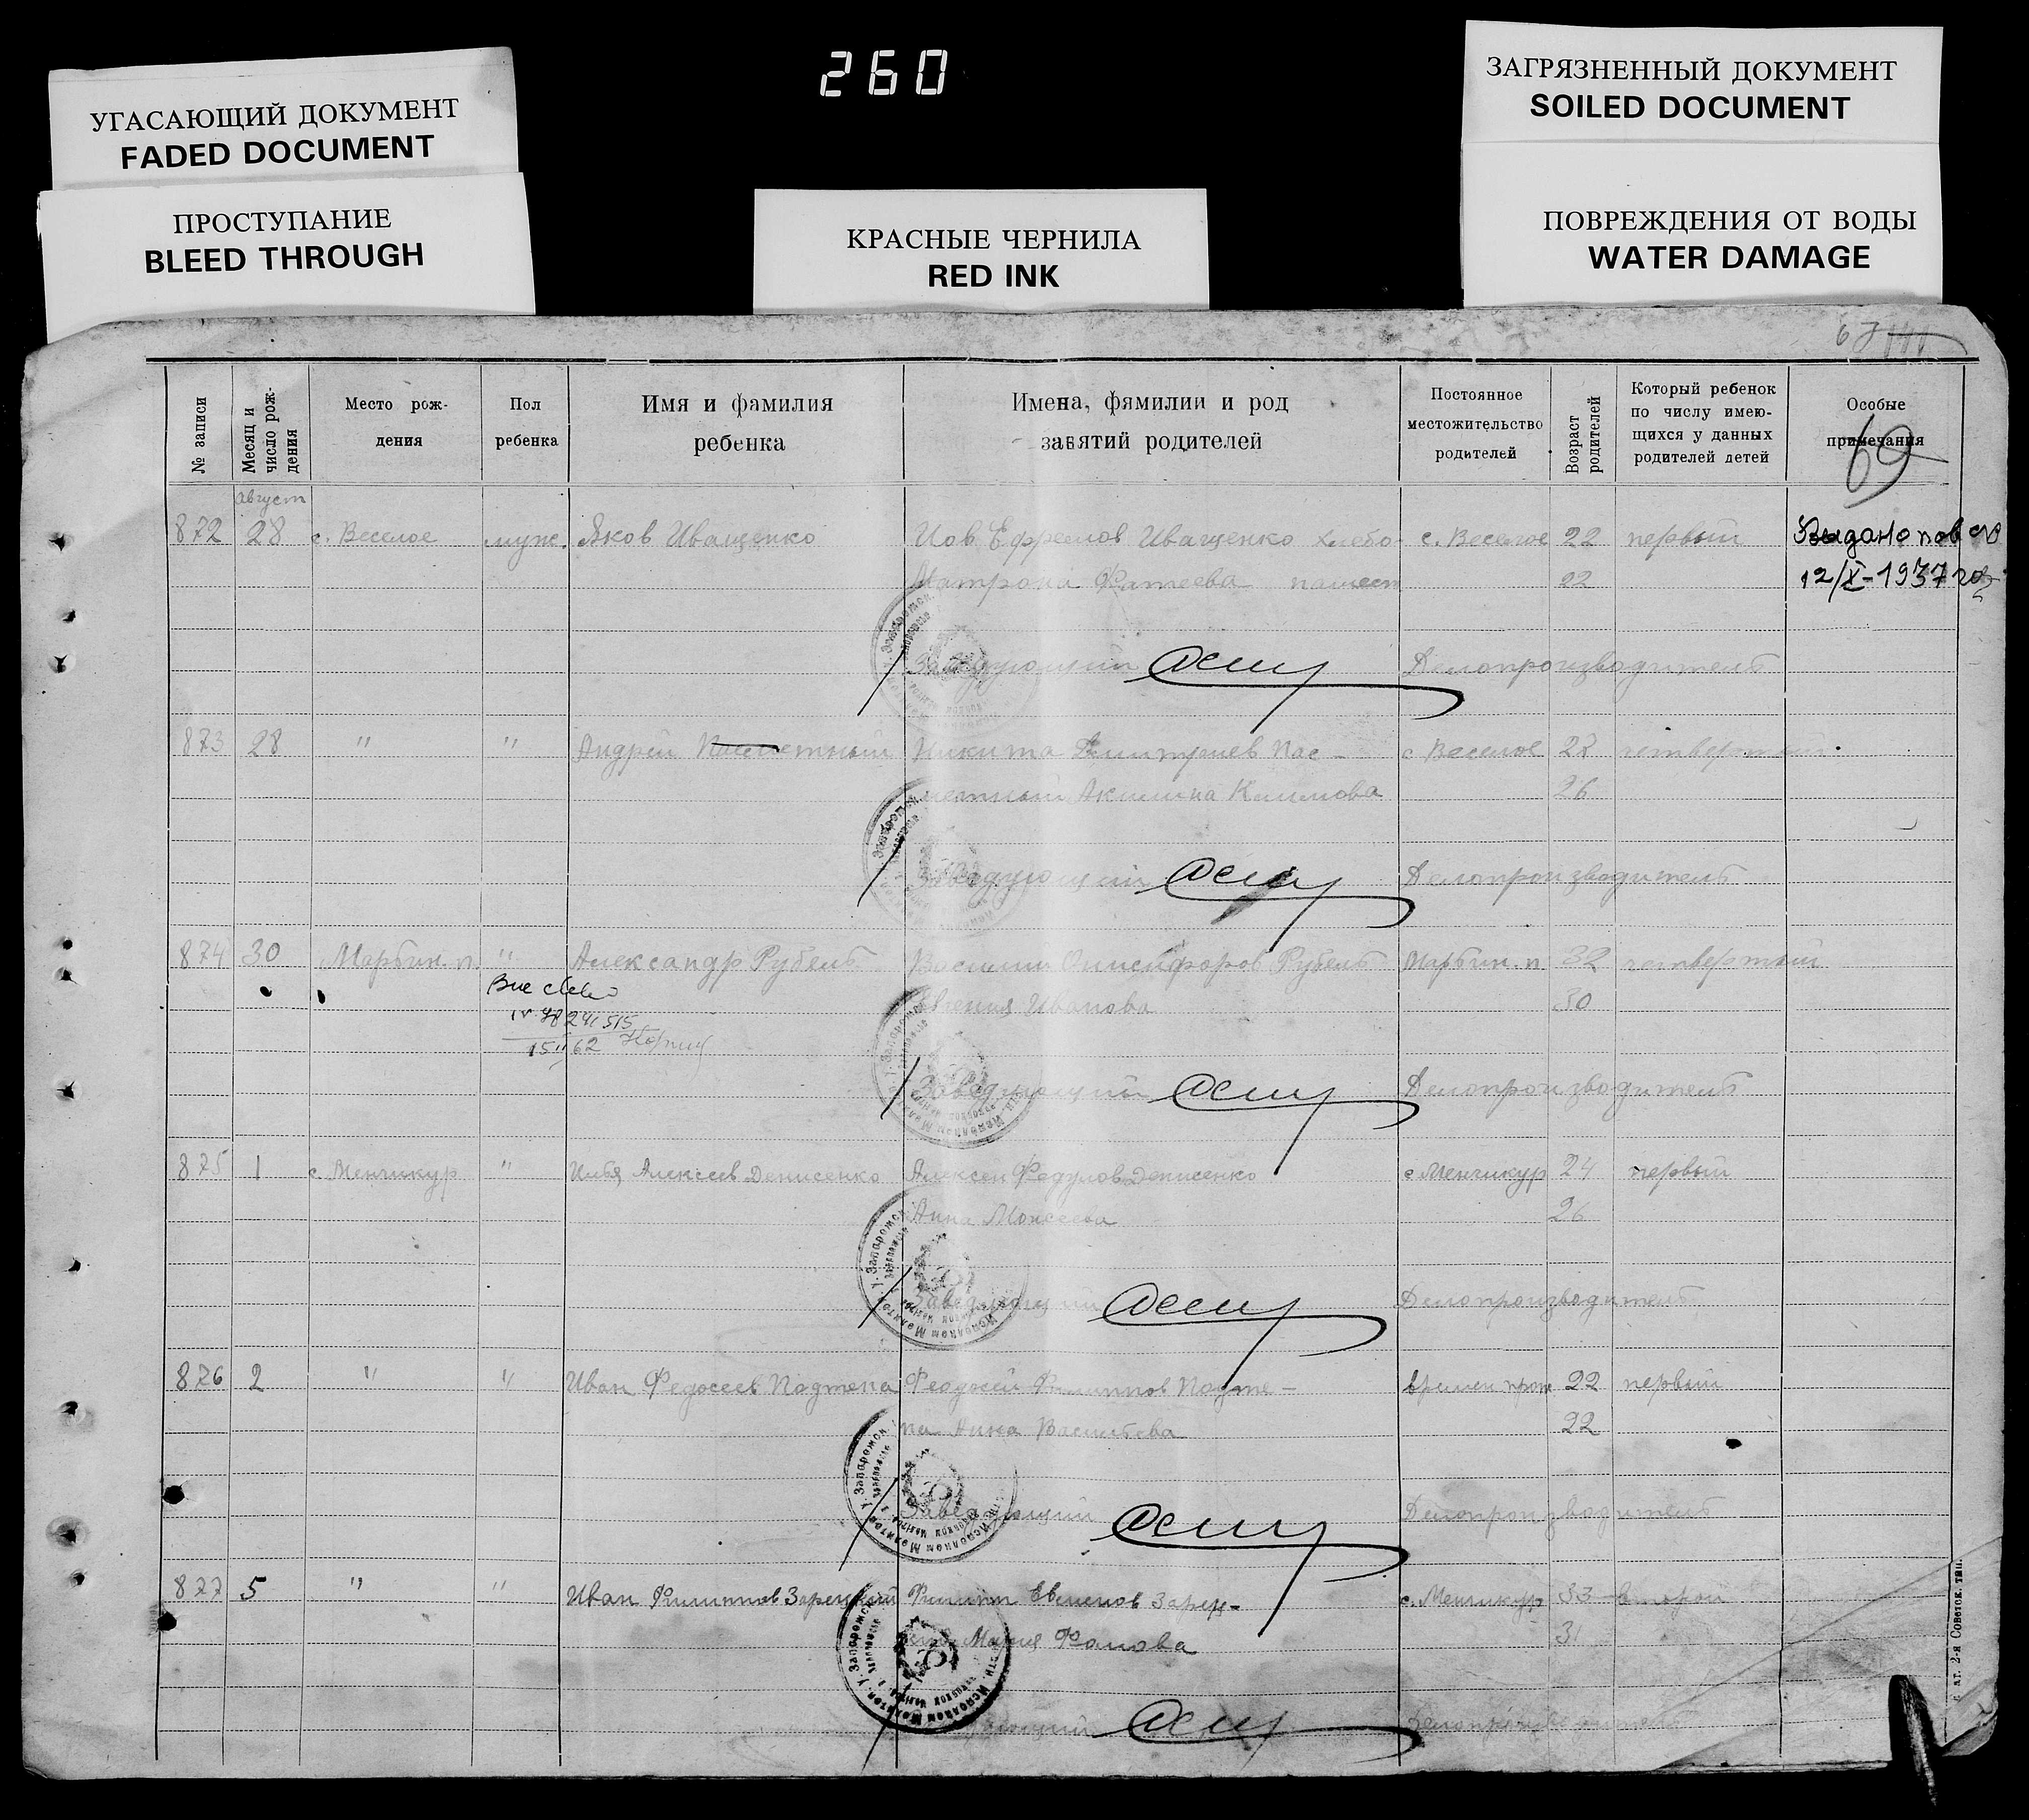 260
УГАСАЮЩИЙ ДОКУМЕНТ
FADED DOCUMENT
ПРОСТУПАНИЕ
BLEED THROUGH
КРАСНЫЕ ЧЕРНИЛА
RED INK
ЗАГРЯЗНЕННЫЙ ДОКУМЕНТ
SOILED DOCUMENT
ПОВРЕЖДЕНИЯ ОТ ВОДЫ
WATER DAMAGE
67
№ записи
Месяц и число рож-дения
Место рож-
дения
Пол
ребенка
Имя и фамилия
ребенка
Имена, фямилии и род
занятий родителей
Постоянное
местожительство
родителей
Возраст родителей
Который ребенок
по числу имею-
щихся у данных
родителей детей
Особые
примечания
69
август
872 28 с. Веселое муж. Яков Иващенко Иов Ефремов Иващенко хлебо- с. Веселое 22 первый Выдано пов
Матрона Фатеева пашест 22 12/X-1937 год
Заведующий Делопроизводитель
873 28 " " Андрей Никита Дмитриев Пас- с Веселое 28 четвертый
метный Акилина Климова 26
Заведующий Делопроизводитель
874 30 Марьин. п. " Александр Рубель Василий Онисифоров Рубель Марьин. п 32 четвертый
Евгения Иванова 30
241515
15 II 62
Заведующий Делопроизводитель
875 1 с Менчикур " Илья Алексеев Денисенко Алексей Федулов Денисенко с Менчикур 24 первый
Анна Моисеева 26
Заведующий Делопроизводитель
876 2 " " Иван Федосеев Подтепа Феодосий Филиппов Подте- времен прож 22 первый
па Анна Васильева 22
Заведующий Делопроизводитель
877 5 " " Иван Филиппов Зарецкий Филипп Евменов Зарец- с. Менчикур 33 второй
Мария Фомова 31
Делопроизводитель